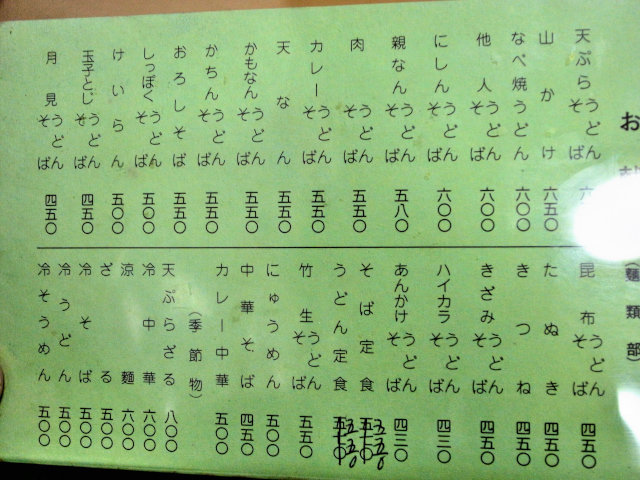 お
(麺類部)
天ぷらうどんそば 六
山かけ 六五〇
なべ焼うどん 六〇〇
他人うどんそば 六〇〇
にしんうどんそば 六〇〇
親なんうどんそば 五八〇
肉うどんそば 五五〇
カレーうどんそば 五五〇
天なん 五五〇
かもなんうどんそば 五五〇
かちんうどんそば 五五〇
おろしそば 五五〇
しっぽくうどんそば 五〇〇
けいらん 五〇〇
玉子とじうどんそば 四五〇
月見うどんそば 四五〇
昆布うどんそば 四五〇
たぬき 四五〇
きつね 四五〇
きざみうどんそば 四五〇
ハイカラうどんそば 四三〇
あんかけうどんそば 四三〇
そば定食 五五〇
うどん定食 五五〇
竹生うどんそば 五五〇
にゅうめん 五〇〇
中華そば 四五〇
カレー中華 五〇〇
(季節物)
天ぷらざる 八〇〇
冷中華 六〇〇
涼麺 六〇〇
ざる 五〇〇
冷そば 五〇〇
冷うどん 五〇〇
冷そうめん 五〇〇